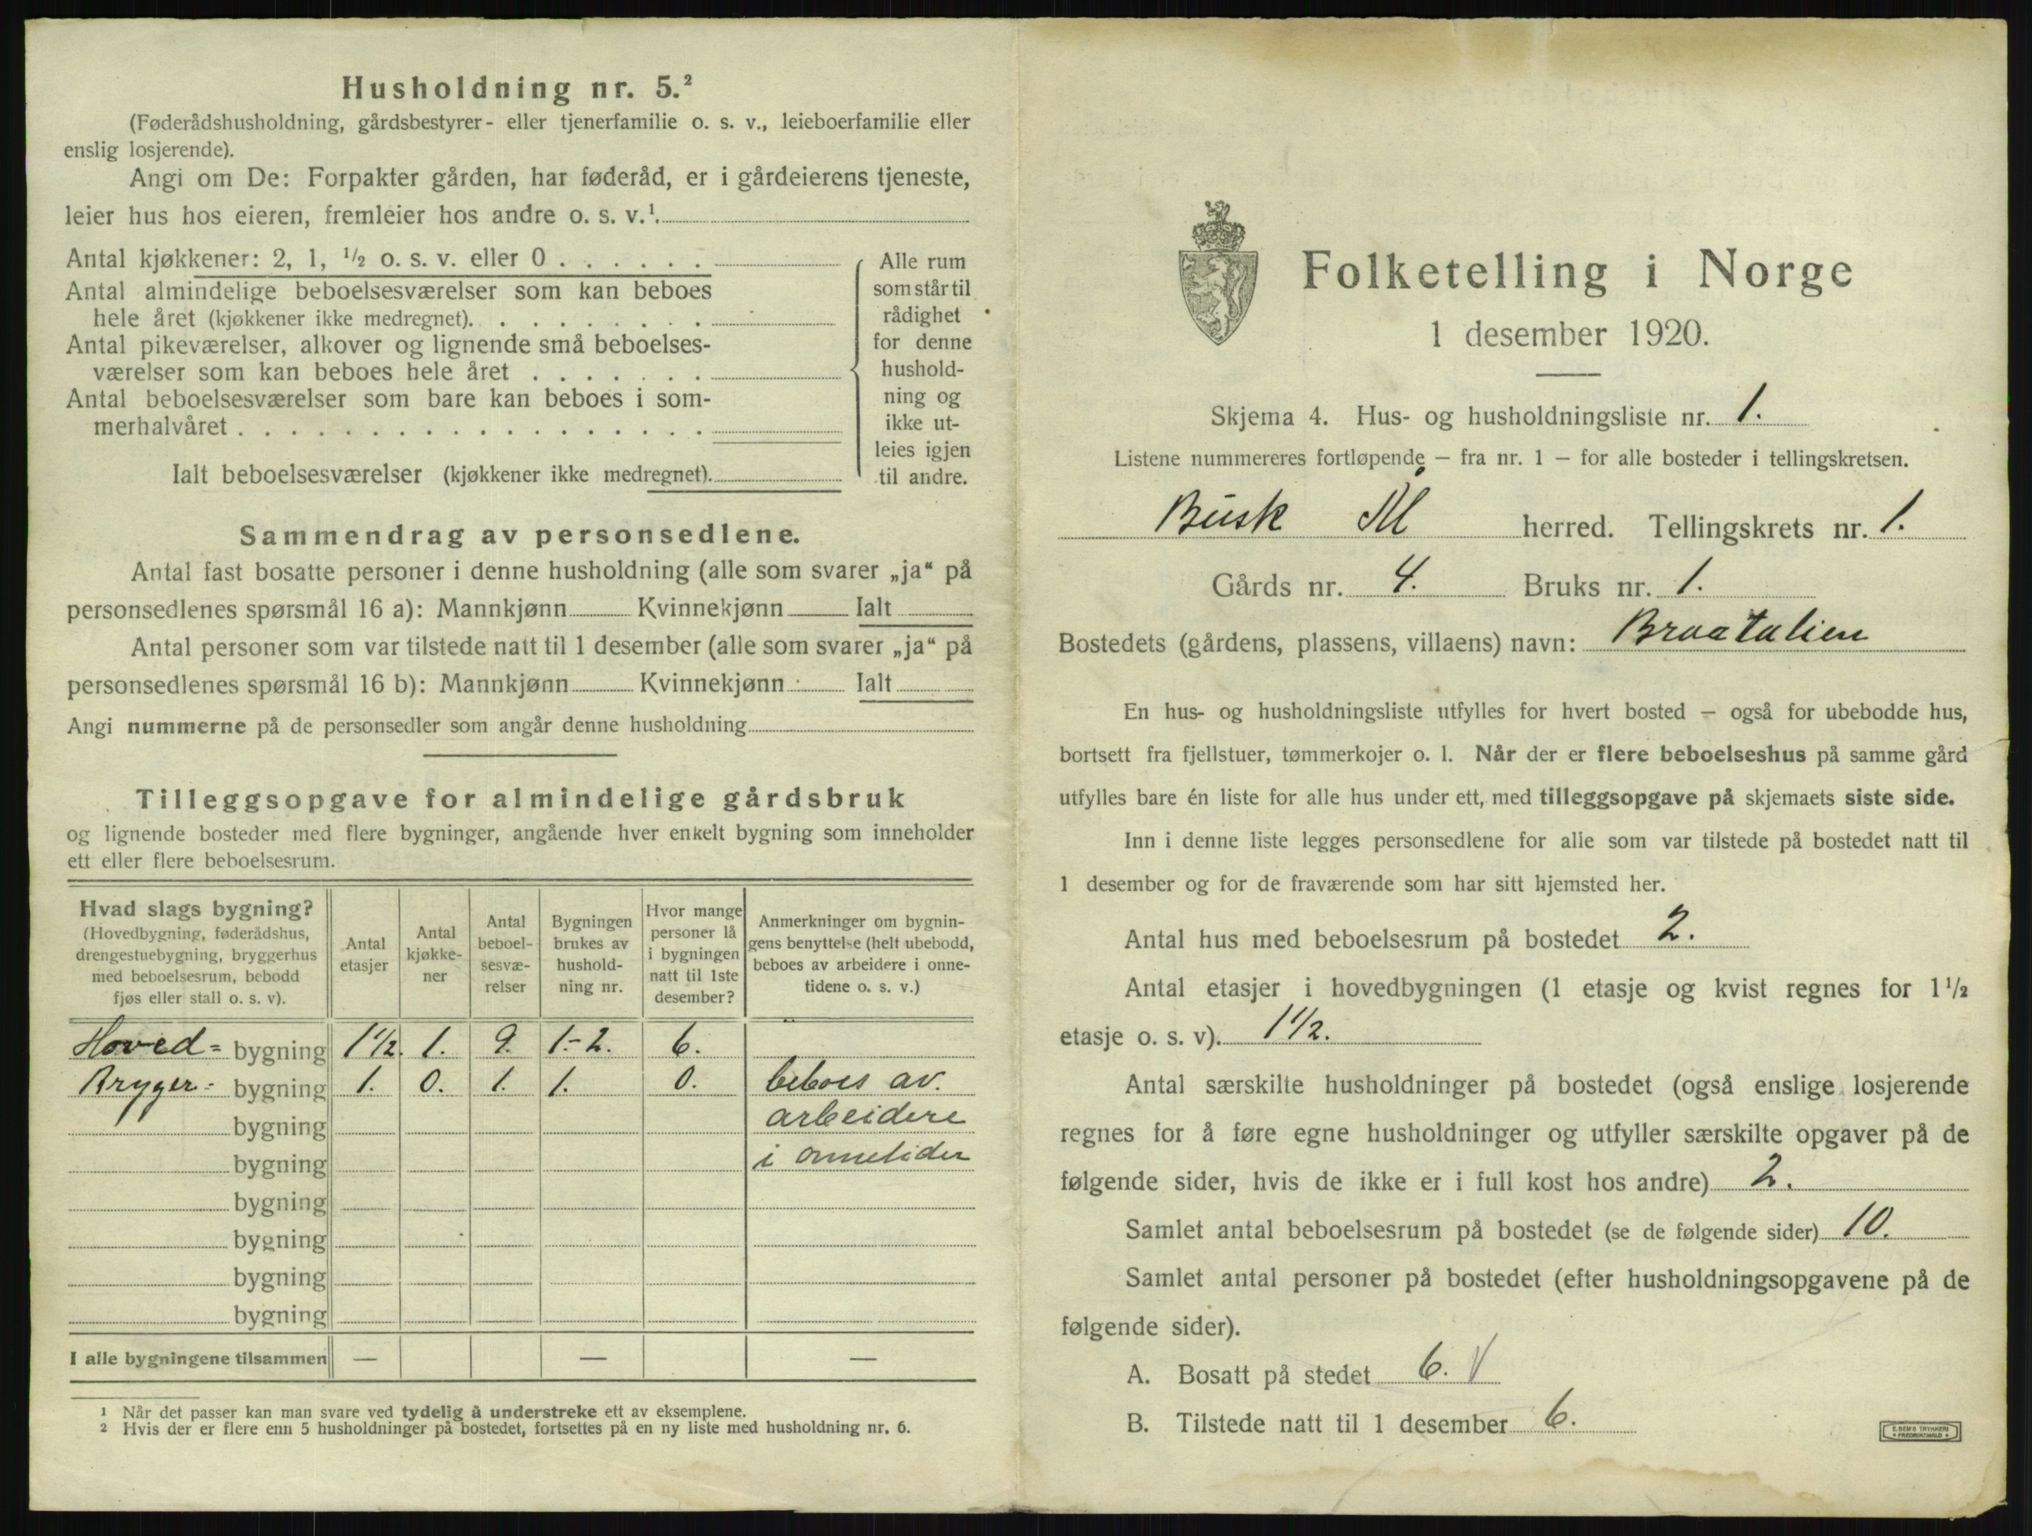 Husholdning nr. 5.²
(Føderådshusholdning, gårdsbestyrer- eller tjenerfamilie o. s. v., leieboerfamilie eller
enslig losjerende).
Angi om De: Forpakter gården, har føderåd, er i gårdeierens tjeneste,
leier hus hos eieren, fremleier hos andre o. s. v.¹
Antal kjøkkener: 2, 1, ½ o. s. v. eller 0 . . . . . .
Antal almindelige beboelsesværelser som kan beboes
hele året (kjøkkener ikke medregnet). . . . . . . . .
Antal pikeværelser, alkover og lignende små beboelses-
værelser som kan beboes hele året . . . . . . .
Antal beboelsesværelser som bare kan beboes i som-
merhalvåret . . . . . . . . . . . . . . . . . .
Ialt beboelsesværelser (kjøkkener ikke medregnet).
Alle rum
som står til
rådighet
for denne
hushold-
ning og
ikke ut-
leies igjen
til andre.
Sammendrag av personsedlene.
Antal fast bosatte personer i denne husholdning (alle som svarer „ja“ på
personsedlenes spørsmål 16 a): Mannkjønn Kvinnekjønn Ialt
Antal personer som var tilstede natt til 1 desember (alle som svarer „ja“ på
personsedlenes spørsmål 16 b): Mannkjønn Kvinnekjønn Ialt
Angi nummerne på de personsedler som angår denne husholdning
Tilleggsopgave for almindelige gårdsbruk
og lignende bosteder med flere bygninger, angående hver enkelt bygning som inneholder
ett eller flere beboelsesrum.
Hvad slags bygning?
(Hovedbygning, føderådshus,
drengestuebygning, bryggerhus
med beboelsesrum, bebodd
fjøs eller stall o. s. v).
Antal
etasjer
Antal
kjøkke-
ner
Antal
beboel-
sesvæ-
relser
Bygningen
brukes av
hushold-
ning nr.
Hvor mange
personer lå
i bygningen
natt til 1ste
desember?
Anmerkninger om bygnin-
gens benyttelse (helt ubebodd,
beboes av arbeidere i onne-
tidene o. s. v.)
Hoved= bygning 1½. 1. 9. 1.-2. 6.
Bryger= bygning 1. 0. 1. 1. 0. beboes av.
bygning arbeidere
bygning i onnetider
bygning
bygning
bygning
bygning
I alle bygningene tilsammen — — —
¹ Når det passer kan man svare ved tydelig å understreke ett av eksemplene.
² Hvis der er flere enn 5 husholdninger på bostedet, fortsettes på en ny liste med husholdning nr. 6.
Folketelling i Norge
1 desember 1920.
Skjema 4. Hus- og husholdningsliste nr. 1.
Listene nummereres fortløpende – fra nr. 1 – for alle bosteder i tellingskretsen.
Busk Ål herred. Tellingskrets nr. 1.
Gårds nr. 4. Bruks nr. 1.
Bostedets (gårdens, plassens, villaens) navn: Braatalien
En hus- og husholdningsliste utfylles for hvert bosted – også for ubebodde hus,
bortsett fra fjellstuer, tømmerkojer o. l. Når der er flere beboelseshus på samme gård
utfylles bare én liste for alle hus under ett, med tilleggsopgave på skjemaets siste side.
Inn i denne liste legges personsedlene for alle som var tilstede på bostedet natt til
1 desember og for de fraværende som har sitt hjemsted her.
Antal hus med beboelsesrum på bostedet 2.
Antal etasjer i hovedbygningen (1 etasje og kvist regnes for 1½
etasje o. s. v). 1½.
Antal særskilte husholdninger på bostedet (også enslige losjerende
regnes for å føre egne husholdninger og utfyller særskilte opgaver på de
følgende sider, hvis de ikke er i full kost hos andre) 2.
Samlet antal beboelsesrum på bostedet (se de følgende sider) 10.
Samlet antal personer på bostedet (efter husholdningsopgavene på de
følgende sider).
A. Bosatt på stedet 6. V
B. Tilstede natt til 1 desember 6.
E. SEM'S TRYKKERI
• FREDRIKSHALD •